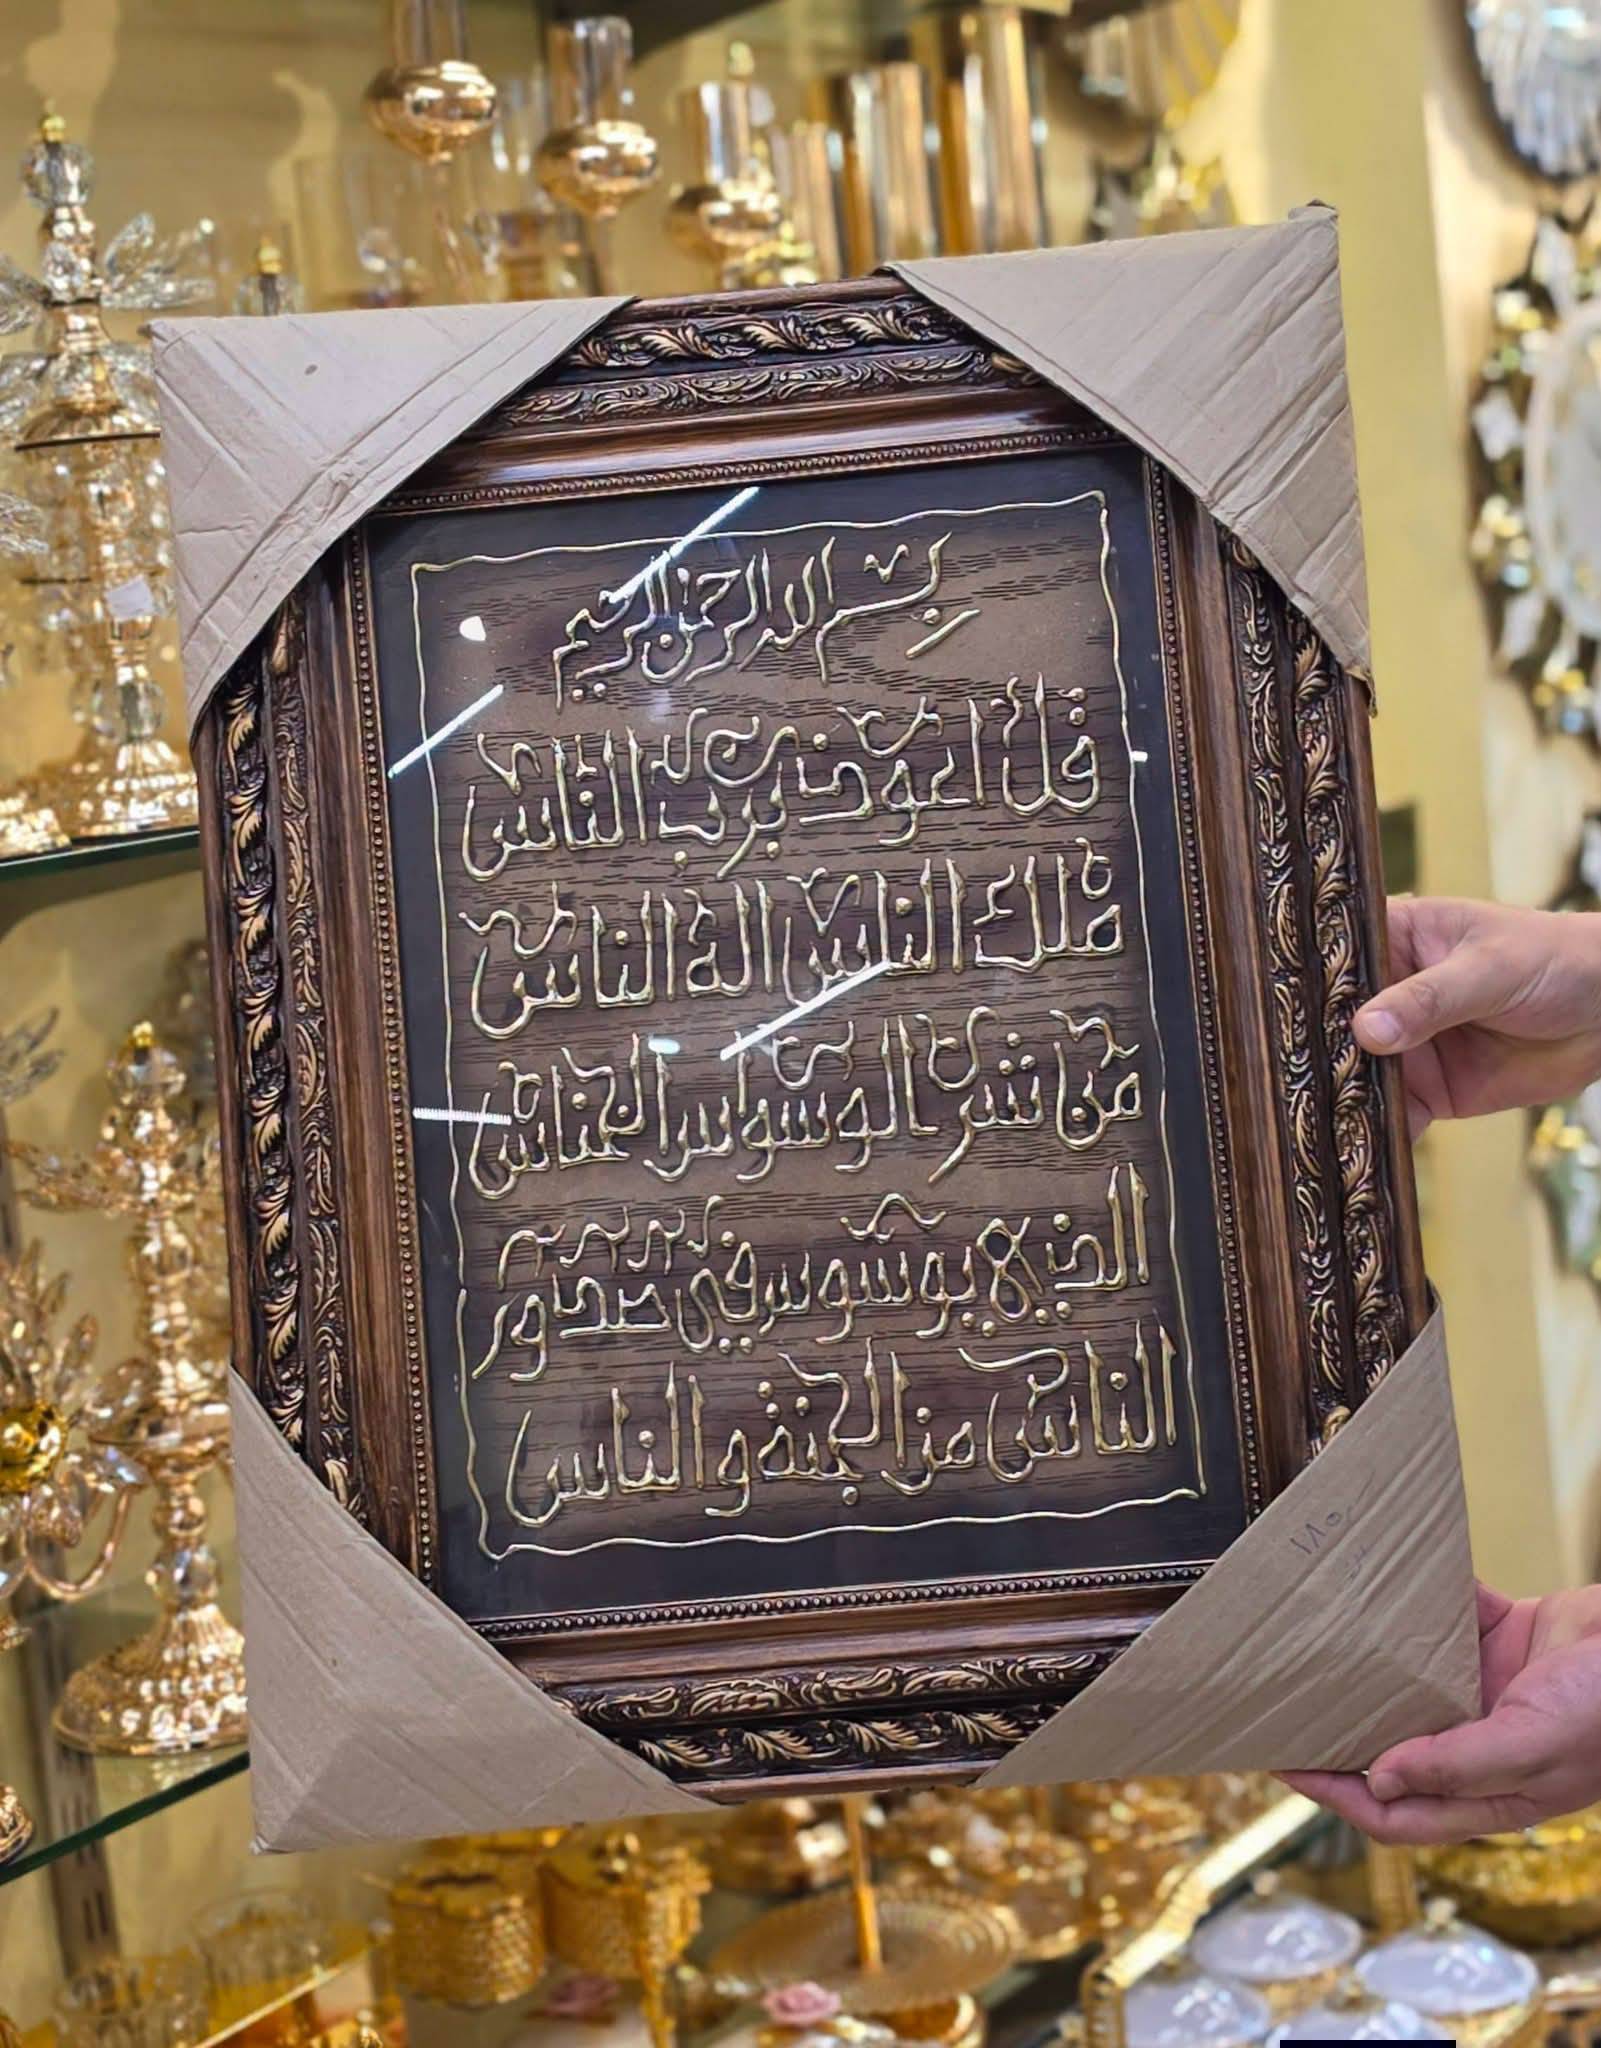 بسم الله الرحمن الرحيم
قل اعوذ برب الناس
ملك الناس اله الناس
من شر الوسواس الخناس
الذي يوسوس في صدور
الناس من الجنة والناس
١٨٥